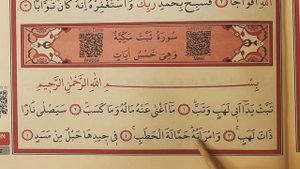 اللّٰهِ اَفْوَاجًاۙ ﴿٢﴾ فَسَبِّحْ بِحَمْدِ رَبِّكَ وَاسْتَغْفِرْهُۜ اِنَّهُ كَانَ تَوَّابًا ﴿٣﴾
سُورَةُ تَبَّتْ مَكِّيَّةٌ
وَهِيَ خَمْسُ اٰيَاتٍ
بِسْمِ اللّٰهِ الرَّحْمٰنِ الرَّحِيمِ
تَبَّتْ يَدَٓا اَبِي لَهَبٍ وَتَبَّۜ ﴿١﴾ مَٓا اَغْنٰى عَنْهُ مَالُهُ وَمَا كَسَبَۜ ﴿٢﴾ سَيَصْلٰى نَارًا
ذَاتَ لَهَبٍۚ ﴿٣﴾ وَامْرَاَتُهُۜ حَمَّالَةَ الْحَطَبِۚ ﴿٤﴾ فِي جِيدِهَا حَبْلٌ مِنْ مَسَدٍ ﴿٥﴾